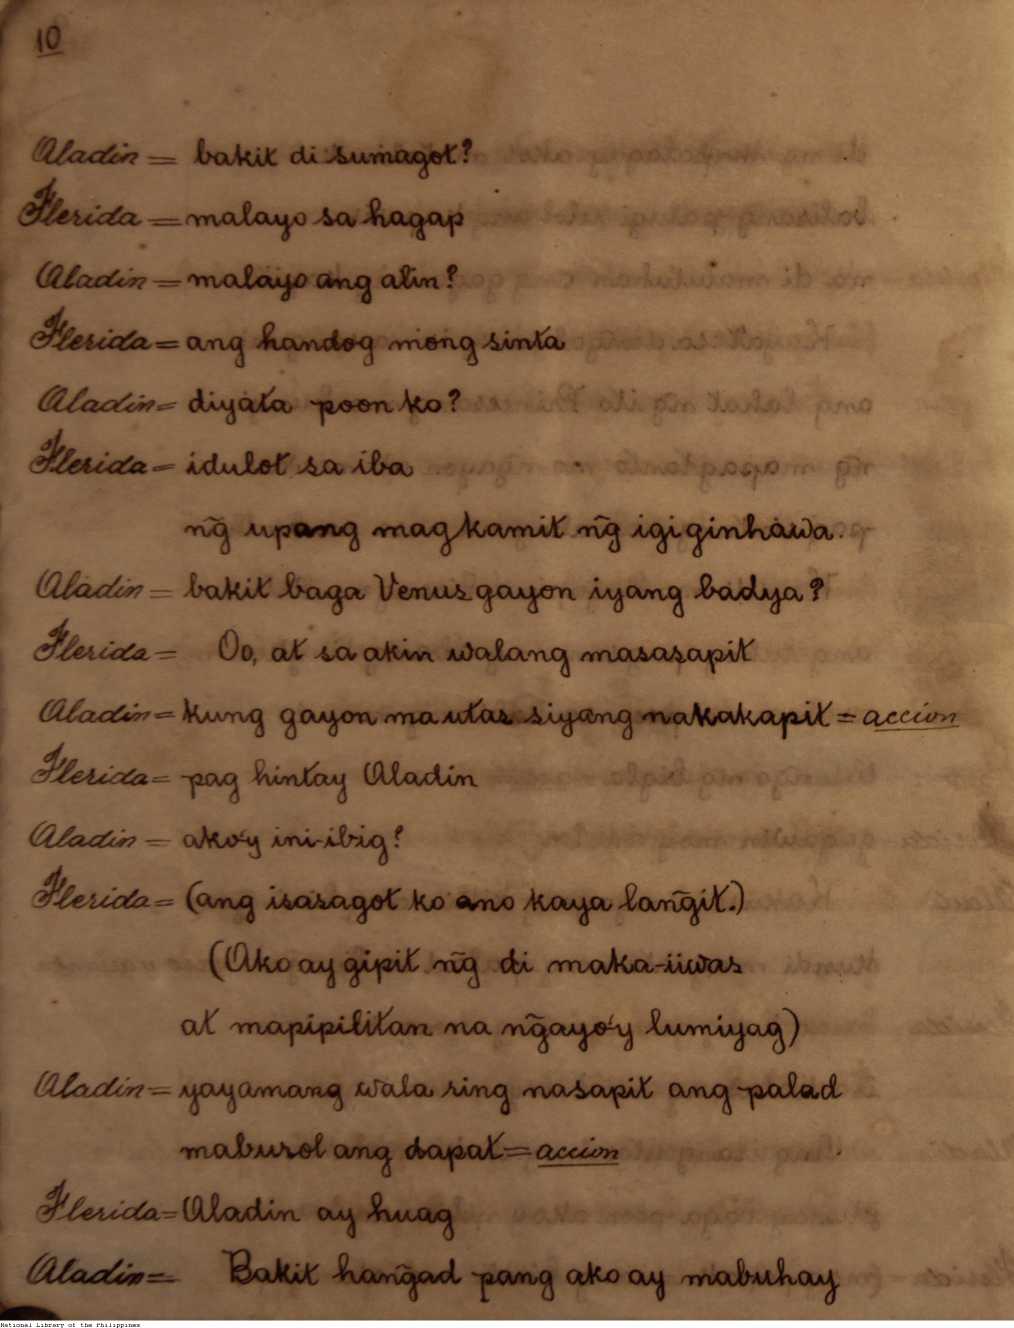 10
Aladin = bakit di sumagot?
Flerida = malayo sa hagap
Aladin = malayo ang alin?
Flerida = ang handog mong sinta
Aladin = diyata poon ko?
Flerida = idulot sa iba
n͠g upang magkamit n͠g igiginhawa.
Aladin = bakit baga Venus gayon iyang badya?
Flerida = Oo, at sa akin walang masasapit
Aladin = kung gayon ma utas siyang nakakapit = accion
Flerida = pag hintay Aladin
Aladin = ako'y ini-ibig?
Flerida = (ang isasagot ko ano kaya lan͠git.)
(Ako ay gipit n͠g di maka-iiwas
at mapipilitan na n͠gayo'y lumiyag)
Aladin = yayamang wala ring nasapit ang palad
mabusol ang dapat = accion
Flerida = Aladin ay huag
Aladin = Bakit han͠gad pang ako ay mabuhay
National Library of the Philippines